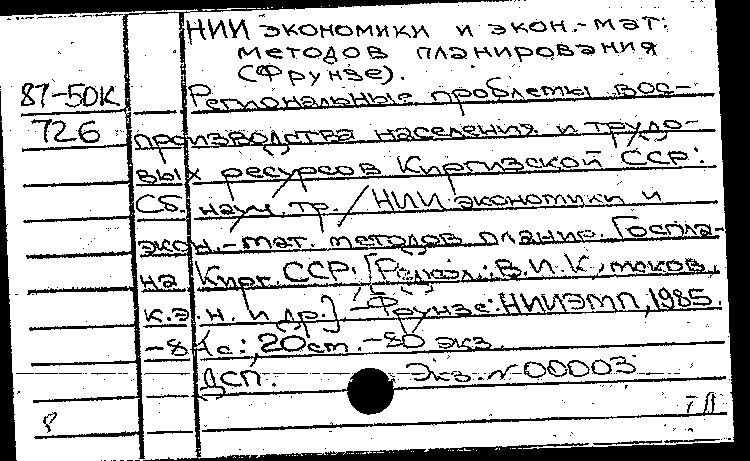 НИИ экономики и экон.-мат.
методов планирования
(Фрунзе).
87-50К Региональные проблемы вос-
726 производства населения и трудо-
вых ресурсов Киргизской ССР:
Сб. науч. тр. / НИИ экономики и
экон.-мат. методов планир. Госпла-
на Кирг. ССР; [Редкол.: В.И.
к.э.н. и др.]. - Фрунзе: НИИЭМП, 1985.
с.; 20 см. - 80 экз.
ДСП. Экз. № 00003